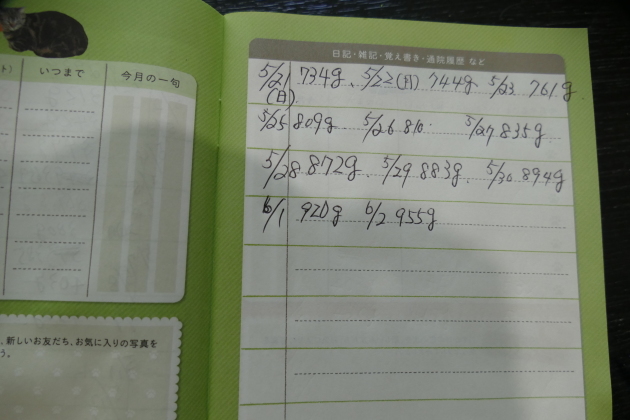 ト)
いつまで
今月の一句
、新しいお友だち、お気に入りの写真を
う。
日記・雑記・覚え書き・通院履歴 など
5/21 734g、5/22(月) 744g 5/23 761g
(日)
5/25 809g 5/26 810 5/27 835g
5/28 872g、5/29 883g、5/30 894g
6/1 920g 6/2 955g